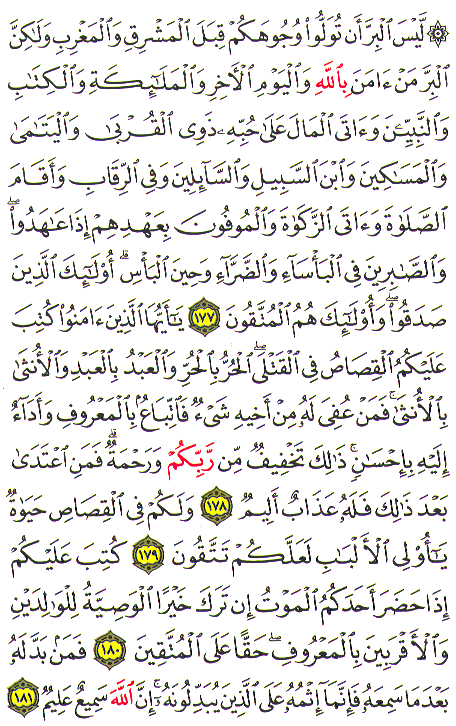 ۞ لَّيْسَ ٱلْبِرَّ أَن تُوَلُّوا۟ وُجُوهَكُمْ قِبَلَ ٱلْمَشْرِقِ وَٱلْمَغْرِبِ وَلَٰكِنَّ
ٱلْبِرَّ مَنْ ءَامَنَ بِٱللَّهِ وَٱلْيَوْمِ ٱلْءَاخِرِ وَٱلْمَلَٰٓئِكَةِ وَٱلْكِتَٰبِ
وَٱلنَّبِيِّۦنَ وَءَاتَى ٱلْمَالَ عَلَىٰ حُبِّهِۦ ذَوِى ٱلْقُرْبَىٰ وَٱلْيَتَٰمَىٰ
وَٱلْمَسَٰكِينَ وَٱبْنَ ٱلسَّبِيلِ وَٱلسَّآئِلِينَ وَفِى ٱلرِّقَابِ وَأَقَامَ
ٱلصَّلَوٰةَ وَءَاتَى ٱلزَّكَوٰةَ وَٱلْمُوفُونَ بِعَهْدِهِمْ إِذَا عَٰهَدُوا۟ۖ
وَٱلصَّٰبِرِينَ فِى ٱلْبَأْسَآءِ وَٱلضَّرَّآءِ وَحِينَ ٱلْبَأْسِۗ أُو۟لَٰٓئِكَ ٱلَّذِينَ
صَدَقُوا۟ۖ وَأُو۟لَٰٓئِكَ هُمُ ٱلْمُتَّقُونَ ١٧٧ يَٰٓأَيُّهَا ٱلَّذِينَ ءَامَنُوا۟ كُتِبَ
عَلَيْكُمُ ٱلْقِصَاصُ فِى ٱلْقَتْلَىۖ ٱلْحُرُّ بِٱلْحُرِّ وَٱلْعَبْدُ بِٱلْعَبْدِ وَٱلْأُنثَىٰ
بِٱلْأُنثَىٰۚ فَمَنْ عُفِىَ لَهُۥ مِنْ أَخِيهِ شَىْءٌ فَٱتِّبَاعٌۢ بِٱلْمَعْرُوفِ وَأَدَآءٌ
إِلَيْهِ بِإِحْسَٰنٍۗ ذَٰلِكَ تَخْفِيفٌ مِّن رَّبِّكُمْ وَرَحْمَةٌۗ فَمَنِ ٱعْتَدَىٰ
بَعْدَ ذَٰلِكَ فَلَهُۥ عَذَابٌ أَلِيمٌ ١٧٨ وَلَكُمْ فِى ٱلْقِصَاصِ حَيَوٰةٌ
يَٰٓأُو۟لِى ٱلْأَلْبَٰبِ لَعَلَّكُمْ تَتَّقُونَ ١٧٩ كُتِبَ عَلَيْكُمْ
إِذَا حَضَرَ أَحَدَكُمُ ٱلْمَوْتُ إِن تَرَكَ خَيْرًا ٱلْوَصِيَّةُ لِلْوَٰلِدَيْنِ
وَٱلْأَقْرَبِينَ بِٱلْمَعْرُوفِۖ حَقًّا عَلَى ٱلْمُتَّقِينَ ١٨٠ فَمَنۢ بَدَّلَهُۥ
بَعْدَمَا سَمِعَهُۥ فَإِنَّمَآ إِثْمُهُۥ عَلَى ٱلَّذِينَ يُبَدِّلُونَهُۥٓۚ إِنَّ ٱللَّهَ سَمِيعٌ عَلِيمٌ ١٨١